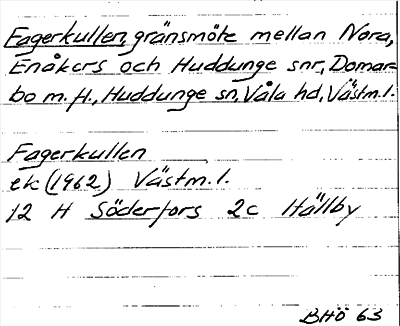 Fagerkullen, gränsmöte mellan Nora,
Enåkers och Huddunge snr, Domar=
bo m.fl., Huddunge sn, Våla hd, Västm.l.
Fagerkullen
ek (1962) Västm.l.
12 H Söderfors 2c Hällby
BHÖ 63